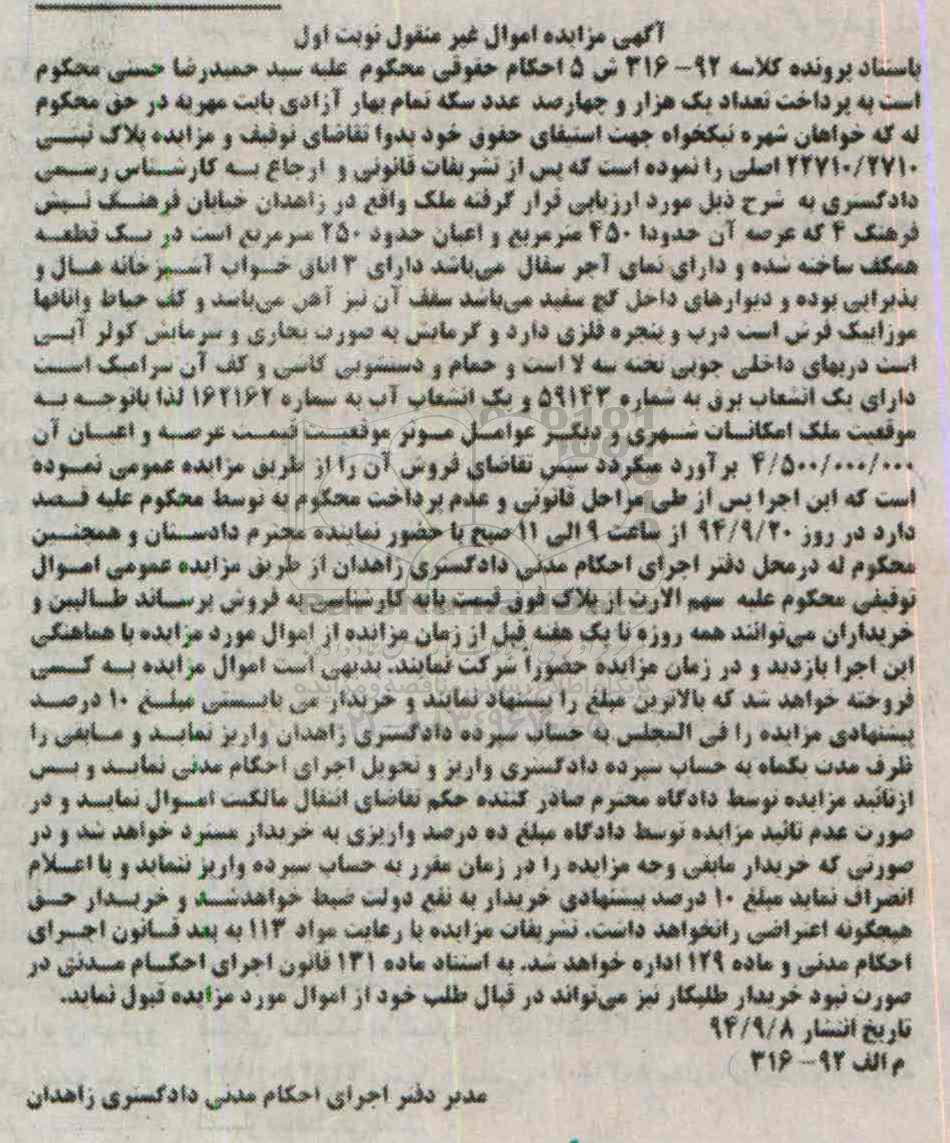 آگهی مزایده اموال غیر منقول نوبت اول
باستناد پرونده کلاسه ۹۲- ۳۱۶ ش ۵ احکام حقوقی محکوم علیه سید حمیدرضا حسنی محکوم
است به پرداخت تعداد یک هزار و چهارصد عدد سکه تمام بهار آزادی بابت مهریه در حق محکوم
له که خواهان شهره نیکخواه جهت استیفای حقوق خود بدوا تقاضای توقیف و مزایده پلاک ثبتی
۲۲۷۱۰/۲۷۱۰ اصلی را نموده است که پس از تشریفات قانونی و ارجاع به کارشناس رسمی
دادگستری به شرح ذیل مورد ارزیابی قرار گرفته ملک واقع در زاهدان خیابان فرهنگ نبش
فرهنگ ۴ که عرصه آن حدودا ۴۵۰ مترمربع و اعیان حدود ۲۵۰ مترمربع است در یک قطعه
همکف ساخته شده و دارای نمای آجر سفال می‌باشد دارای ۳ اتاق خواب آشپزخانه هال و
پذیرایی بوده و دیوارهای داخل گچ سفید می‌باشد سقف آن نیز آهن می‌باشد و کف حیاط واتاقها
موزاییک فرش است درب و پنجره فلزی دارد و گرمایش به صورت بخاری و سرمایش کولر آبی
است دربهای داخلی چوبی تخته سه لا است و حمام و دستشویی کاشی و کف آن سرامیک است
دارای یک انشعاب برق به شماره ۵۹۱۴۳ و یک انشعاب آب به شماره ۱۶۲۱۶۲ لذا باتوجه به
موقعیت ملک امکانات شهری و دیگر عوامل موثر موقعیت قیمت عرصه و اعیان آن
۴/۵۰۰/۰۰۰/۰۰۰ برآورد میگردد سپس تقاضای فروش آن را از طریق مزایده عمومی نموده
است که این اجرا پس از طی مراحل قانونی و عدم پرداخت محکوم به توسط محکوم علیه قصد
دارد در روز ۹۴/۹/۲۰ از ساعت ۹ الی ۱۱ صبح با حضور نماینده محترم دادستان و همچنین
محکوم له درمحل دفتر اجرای احکام مدنی دادگستری زاهدان از طریق مزایده عمومی اموال
توقیفی محکوم علیه سهم الارث از پلاک فوق قیمت پایه کارشناسی به فروش برساند طالبین و
خریداران می‌توانند همه روزه تا یک هفته قبل از زمان مزایده از اموال مورد مزایده با هماهنگی
این اجرا بازدید و در زمان مزایده حضوراً شرکت نمایند. بدیهی است اموال مزایده به کسی
فروخته خواهد شد که بالاترین مبلغ را پیشنهاد نمایند و خریدار می بایستی مبلغ ۱۰ درصد
پیشنهادی مزایده را فی المجلس به حساب سپرده دادگستری زاهدان واریز نماید و مابقی را
ظرف مدت یکماه به حساب سپرده دادگستری واریز و تحویل اجرای احکام مدنی نماید و پس
ازتائید مزایده توسط دادگاه محترم صادر کننده حکم تقاضای انتقال مالکیت اموال نماید و در
صورت عدم تائید مزایده توسط دادگاه مبلغ ده درصد واریزی به خریدار مسترد خواهد شد و در
صورتی که خریدار مابقی وجه مزایده را در زمان مقرر به حساب سپرده واریز ننماید و یا اعلام
انصراف نماید مبلغ ۱۰ درصد پیشنهادی خریدار به نفع دولت ضبط خواهدشد و خریدار حق
هیچگونه اعتراضی رانخواهد داشت. تشریفات مزایده با رعایت مواد ۱۱۳ به بعد قانون اجرای
احکام مدنی و ماده ۱۲۹ اداره خواهد شد. به استناد ماده ۱۳۱ قانون اجرای احکام مدنی در
صورت نبود خریدار طلبکار نیز می‌تواند در قبال طلب خود از اموال مورد مزایده قبول نماید.
تاریخ انتشار ۹۴/۹/۸
م الف ۹۲- ۳۱۶
مدیر دفتر اجرای احکام مدنی دادگستری زاهدان